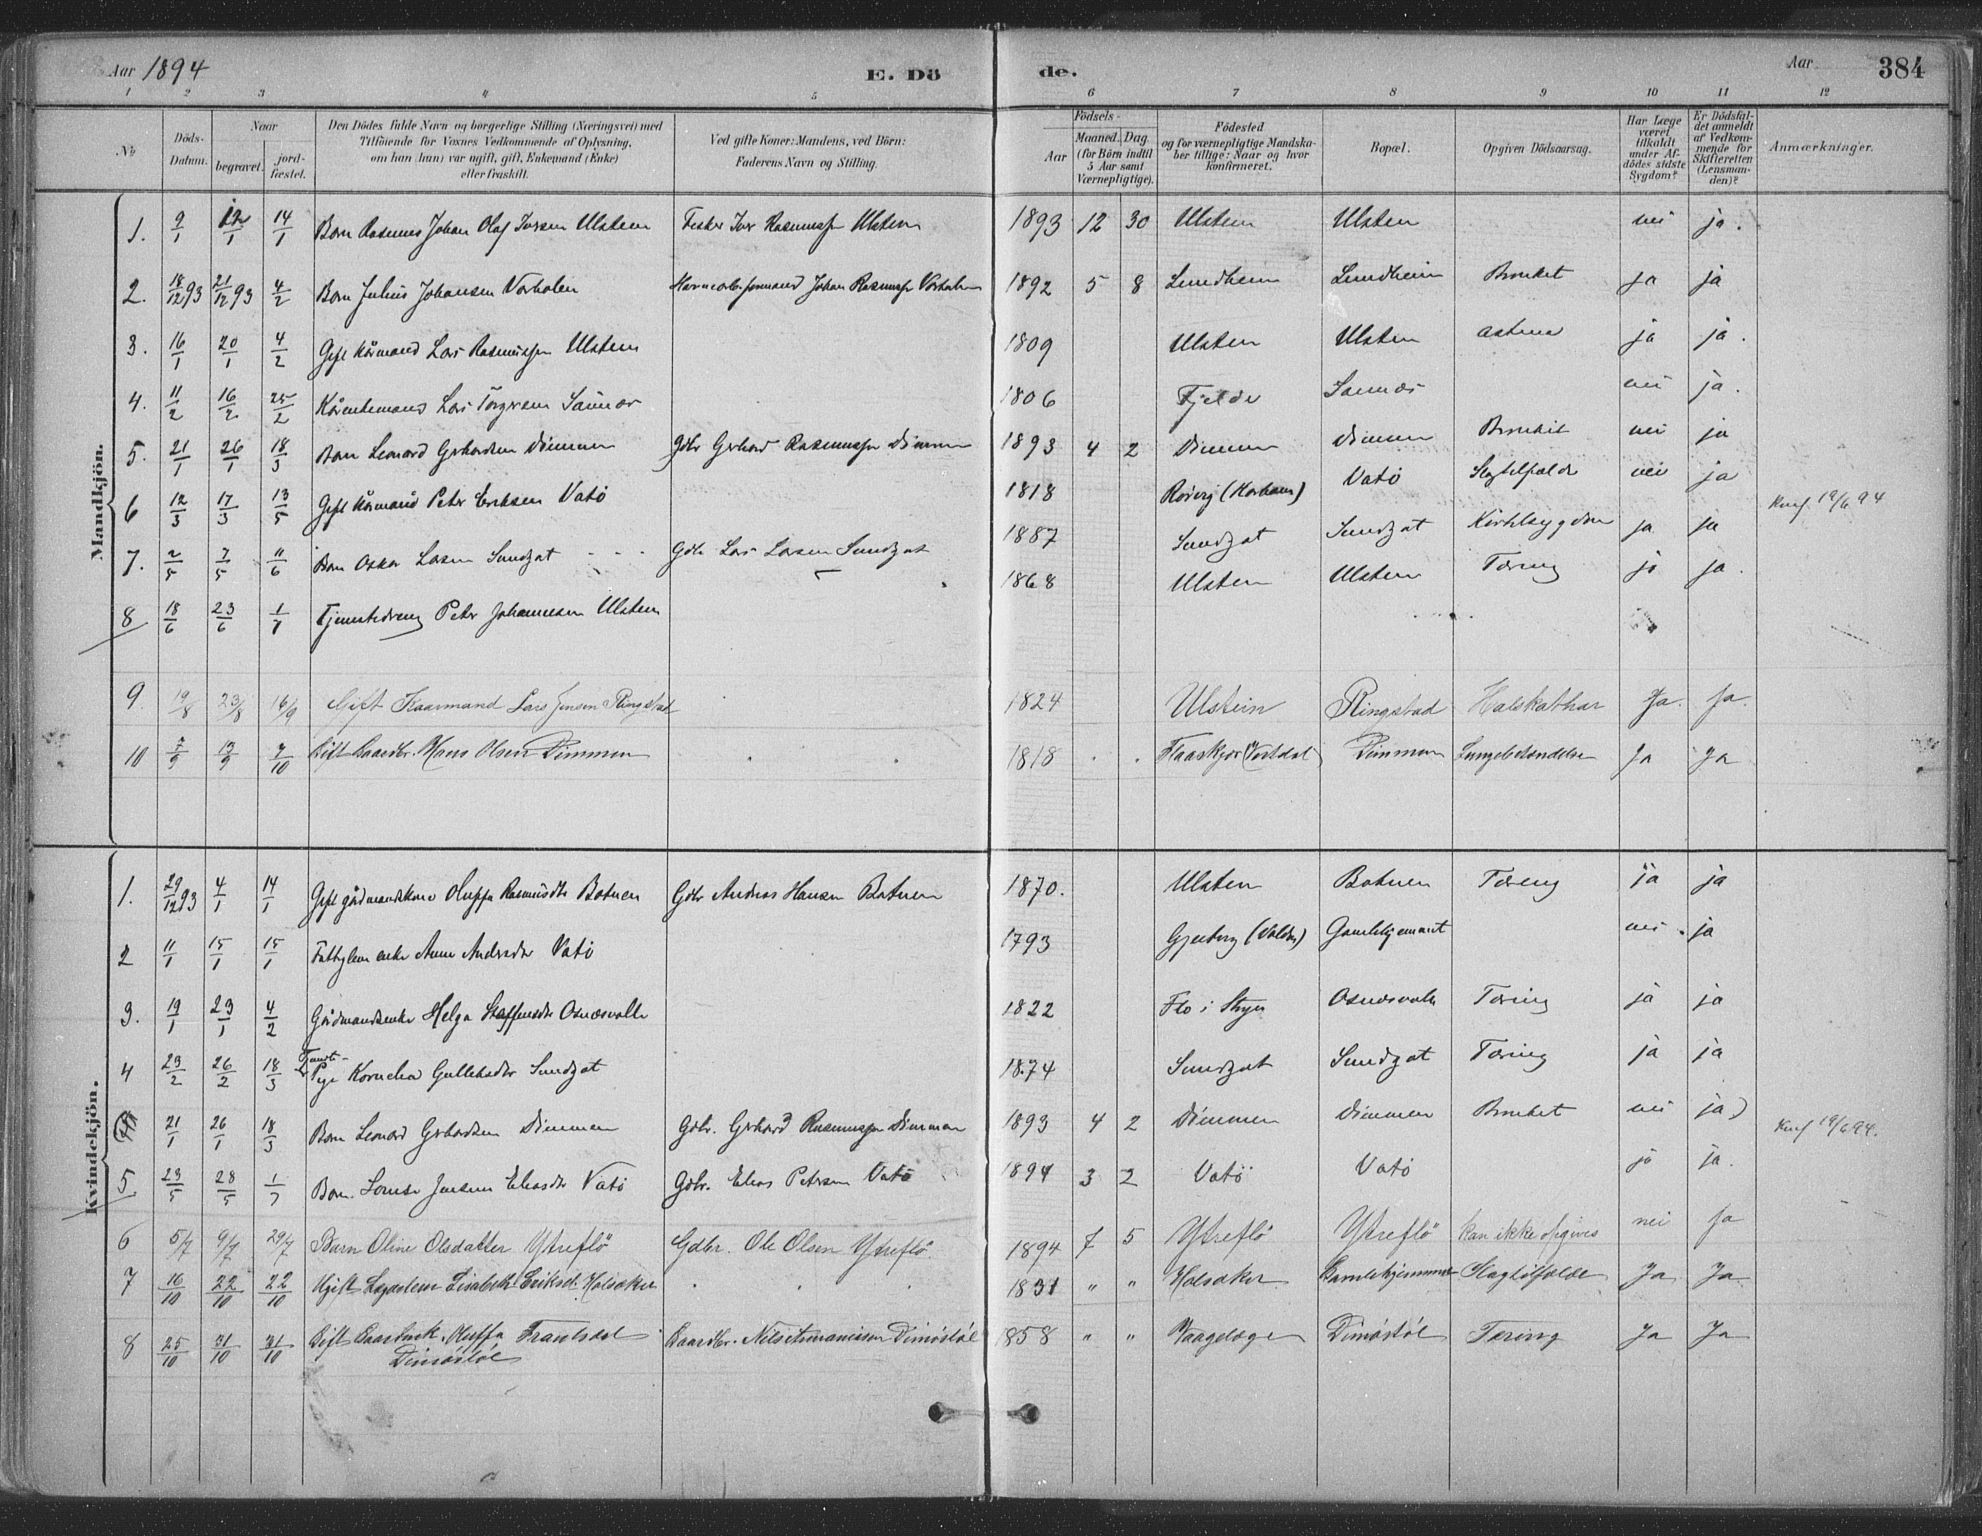 Aar 1894 E. Dö de. Aar 384
1 2 3 4 5 6 7 8 9 10 11 12
No Döds-Datum. Naar begravet. jordfæstet. Den Dödes fulde Navn og borgerlige Stilling (Næringsvei) med Tilföiende for Voxnes Vedkommende af Oplysning, om han (hun) var ugift, gift, Enkemand (Enke) eller fraskilt. Ved gifte Koner: Mandens, ved Börn: Faderens Navn og Stilling. Födsels- Aar Maaned. Dag (for Börn indtil 5 Aar samt Værnepligtige). Födested og for værnepligtige Mandskaber tillige: Naar og hvor konfirmeret. Bopæl. Opgiven Dödsaarsag. Har Læge været tilkaldt under Afdödes sidste Sygdom? Er Dödsfaldet anmeldt af Vedkommende for Skifteretten (Lensmanden)? Anmærkninger.
Mandkjön.
1. 9/1 12/1 14/1 Barn Rasmus Johan Olaf Iversen Ulstein Fisker Iver Rasmussen Ulstein 1893 12 30 Ulstein Ulstein nei ja.
2. 18/12 93 21/12 93 4/2 Barn Julius Johansen Varholm Johan Rasmussen Varholm 1892 5 8 Lundheim Lundheim Bronkit ja ja
3. 16/1 20/1 4/2 Gift Kårmand Lars Rasmussen Ulstein 1809 Ulstein Ulstein astma ja ja.
4. 11/2 16/2 25/2 Kårenkemand Lars 1806 Fjelde nei ja.
5. 21/1 26/1 18/3 Barn Leonard Gerhardsen Dimmen Gdbr Gerhard Rasmussen Dimmen 1893 4 2 Dimmen Dimmen Bronkit nei ja
6 12/3 17/3 13/5 Gift Kårmand Peter Eriksen Vatö 1818 Vatö nei ja Knf 19/6 94
7. 2/5 7/5 11/6 Barn Oskar Larsen Sundgot Gdbr Lars Larsen Sundgot 1887 Sundgot Sundgot Kirtelsygdom ja ja
8 18/6 23/6 1/7 Tjenestedreng Peter Johannessen Ulstein 1868 Ulstein Ulstein Tæring ja ja.
9. 19/8 23/8 16/9 Gift Kaarmand Lars Jensen Ringstad 1824 Ulstein Ringstad Halskathar Ja. Ja.
10 7/9 13/9 7/10 Gift Gaardbr. Hans Olsen Dimmen 1818 Dimmen Lungebetændelse Ja Ja
Kvindekjön.
1. 29/12 93 4/1 14/1 Gift gårdmandskone Oluffa Rasmusdtr Botnen Gdbr Andreas Hansen Botnen 1870. Ulstein Botnen Tæring ja ja
2 11/1 15/1 15/1 enke Anne Andersdtr Vatö 1793 Gamlehjemmet nei ja
3. 19/1 23/1 4/2 Gårdmandsenke Helga Steffensdtr Osnæsvolle 1822 Flo i Stryn Osnæsvolle Tæring ja ja
4 23/2 26/2 18/3 Tjeneste-Pige Kornelia Sundgot 1874 Sundgot Sundgot Tæring ja ja
21/1 26/1 18/3 Barn Leonard Gerhardsen Dimmen Gdbr. Gerhard Rasmussen Dimmen 1893 4 2 Dimmen Dimmen Bronkit nei ja) Knf 19/6 94.
5 23/5 28/5 1/7 Barn Eliasdtr Vatö Gdbr. Elias Petersen Vatö 1894 3 2 Vatö Vatö ja ja.
6 5/7 9/7 29/7 Barn Oline Olsdatter Ytreflö Gdbr. Ole Olsen Ytreflö 1894 7 5 Ytreflö Ytreflö kan ikke opgives nei ja
7 16/10 22/10 22/10 Ugift Lægdslem Eriksd. Halsaker 1831 " " Halsaker Gamlehjemmet Slagtilfælde Ja Ja
8 25/10 31/10 31/10 Gift Oluffa Frantsdat
Dimöstöl Gaardbr. Dimöstöl 1858 " " Dimöstöl Tæring Ja Ja